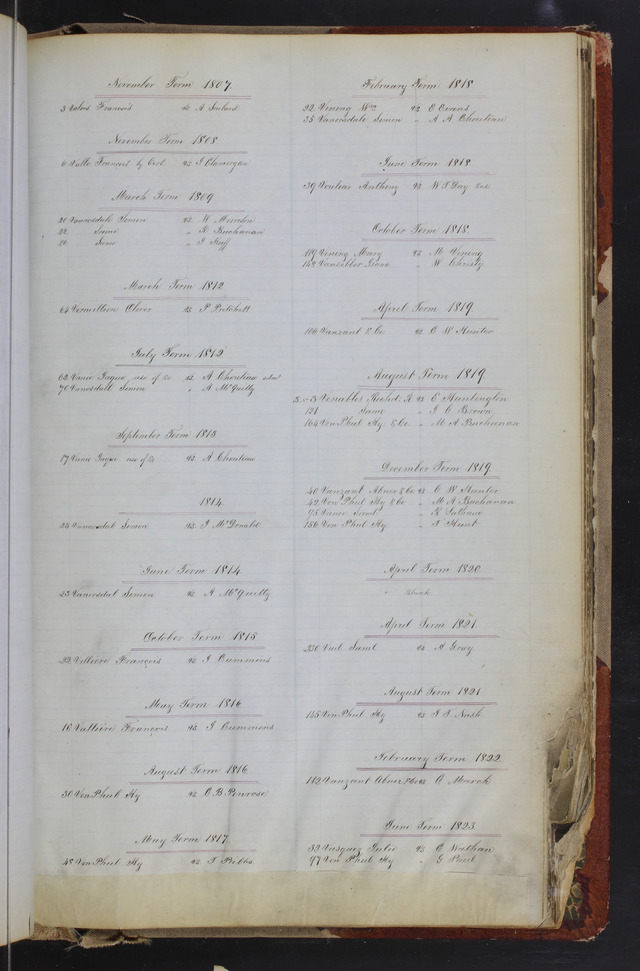 November Term 1807.
3 Valois Francois vs A
November Term 1808
6 Valle François by vs J Clamorgan
March Term 1809
20 Vanorsdale Simon vs W
22 Same " R Buchanan
26 Same " J Huff
March Term 1812
64 Vermillion Oliver vs P Pritchett
July Term 1812
62 use of &c vs A Chouteau
70 Vanorsdall Simon " A McGuelly
September Term 1813
17 use of &c vs A Chouteau
1814
28 Vanorsdal Simon vs J McDonald
June Term 1814
23 Vanorsdal Simon vs A McGuelly
October Term 1815
22 Valliere François vs J Cummins
May Term 1816
16 Valliere François vs J Cummins
August Term 1816
30 Von Phul Hy vs C B Penrose
May Term 1817
48 Von Phul Hy vs T
February Term 1818
22 Vining Wm vs C Evans
35 Vanorsdale Simon " A A Chouteau
June Term 1818
39 Anthony vs W T Day
October Term 1818
119 Vining Mary vs M Vining
142 " W Christy
April Term 1819
106 Vanzant & Co. vs C W Hunter
August Term 1819
3 Venables Richd. R vs E Huntington
121 Same " J C Brown
164 Von Phul Hy. & Co. " M A Buchanan
December Term 1819
40 Vanzant Abner & Co vs C W Hunter
42 Von Phul Hy & Co " M A Buchanan
95 Vance Saml " R
156 Von Phul Hy " T Hunt
April Term 1820
Blank
April Term 1821
230 Vail Saml vs A Gray
August Term 1821
145 Von Phul Hy vs I T Nash
February Term 1822
112 Vanzant Abner & Co vs C March
June Term 1823
32 Vasquez Julie vs C
97 Von Phul Hy " G Paul